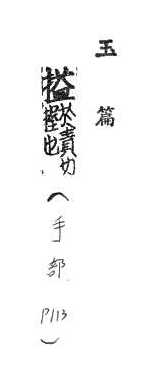 玉篇
搤於責切握也(手部P113)